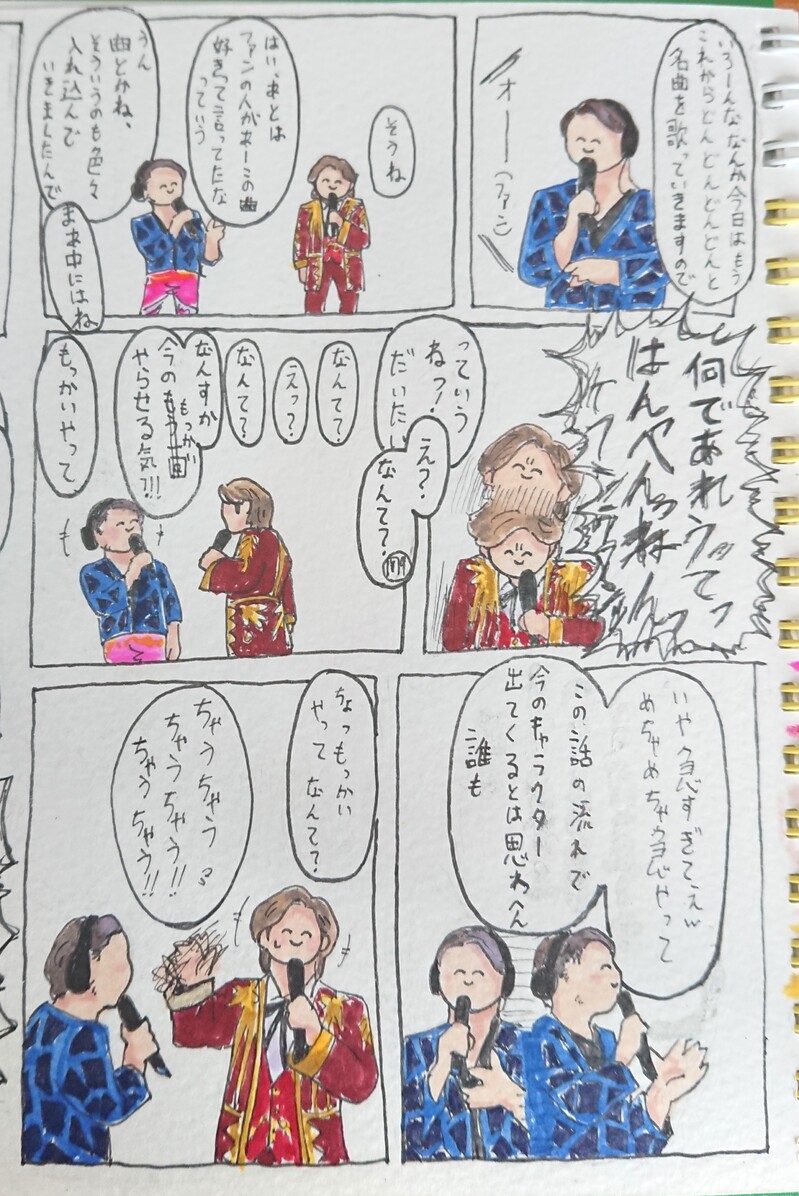 いろーんななんか今日はもう
これからどんどんどんどんと
名曲を歌っていきますので
オーー(ファン)
そうね
はい、あとは
ファンの人があーこの曲
好きって言ってたな
っていう
うん
曲とかね、
そういうのも色々
入れ込んで
いきましたんで
まあ中にはね
何であれうってっ
はんぺんっねんっ
っていう
ねっ!
だいたい
え?
なんて?
なんて?
えっ?
なんて?
なんすか
もっかい
今の
やらせる気?!!
もっかいやって
いや急すぎてえw
めちゃめちゃ急やって
この話の流れで
今のキャラクター
出てくるとは思わへん
誰も
ちょっもっかい
やってなんて?
ちゃうちゃう
ちゃうちゃう!!
ちゃうちゃう!!